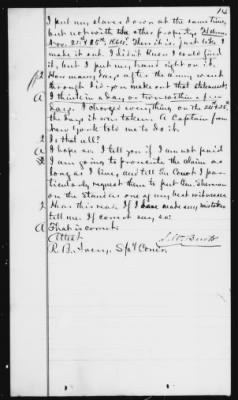 14
I put my slaves down at the same time,
but not with the other property.
Nov. 25th 1864. There it is just like I
made it out. I didn't know I could find
it, but I put my hand right on it.
2 How many days after the army went
through did you make out that statement
A I think in a day or two within a few
days. I charged everything on the
the day it was taken. A Captain from
New York told me to do it.
2 Is that all?
A I hope so. I tell you if I am not paid
I am going to prosecute the claim as
long as I live, and tell the Court I par-
ticularly request them to put Gen. Sherman
on the stand as one of my best witnesses.
2 Hear this read. If I have made any mistakes
tell me. If correct say so.
A That is correct.
Attest
R. B. Avery, Spl Comr